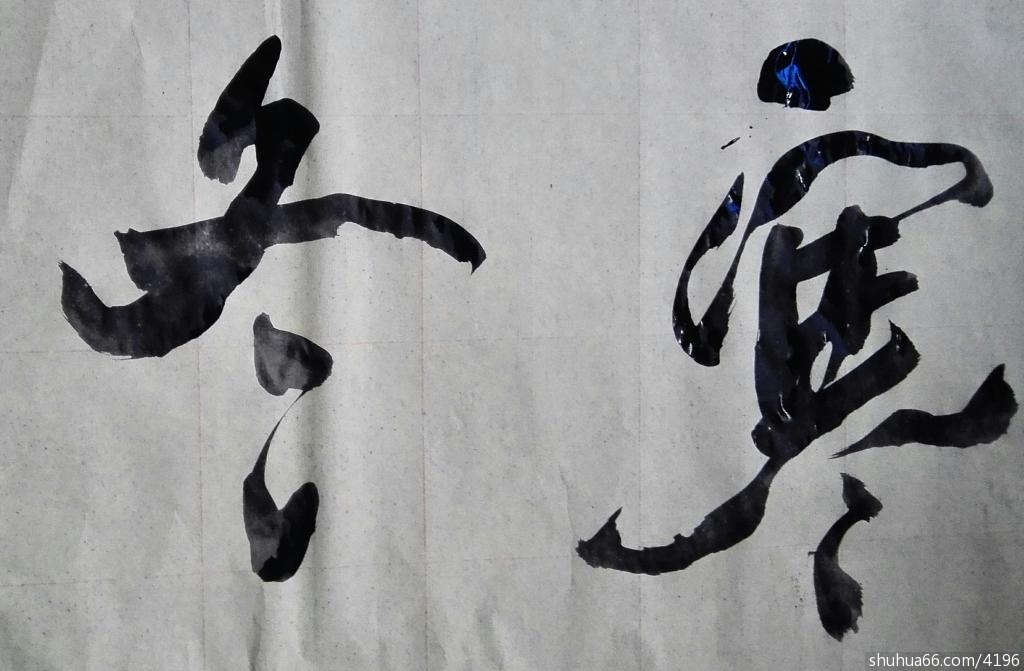 寒冬
shuhua66.com/4196